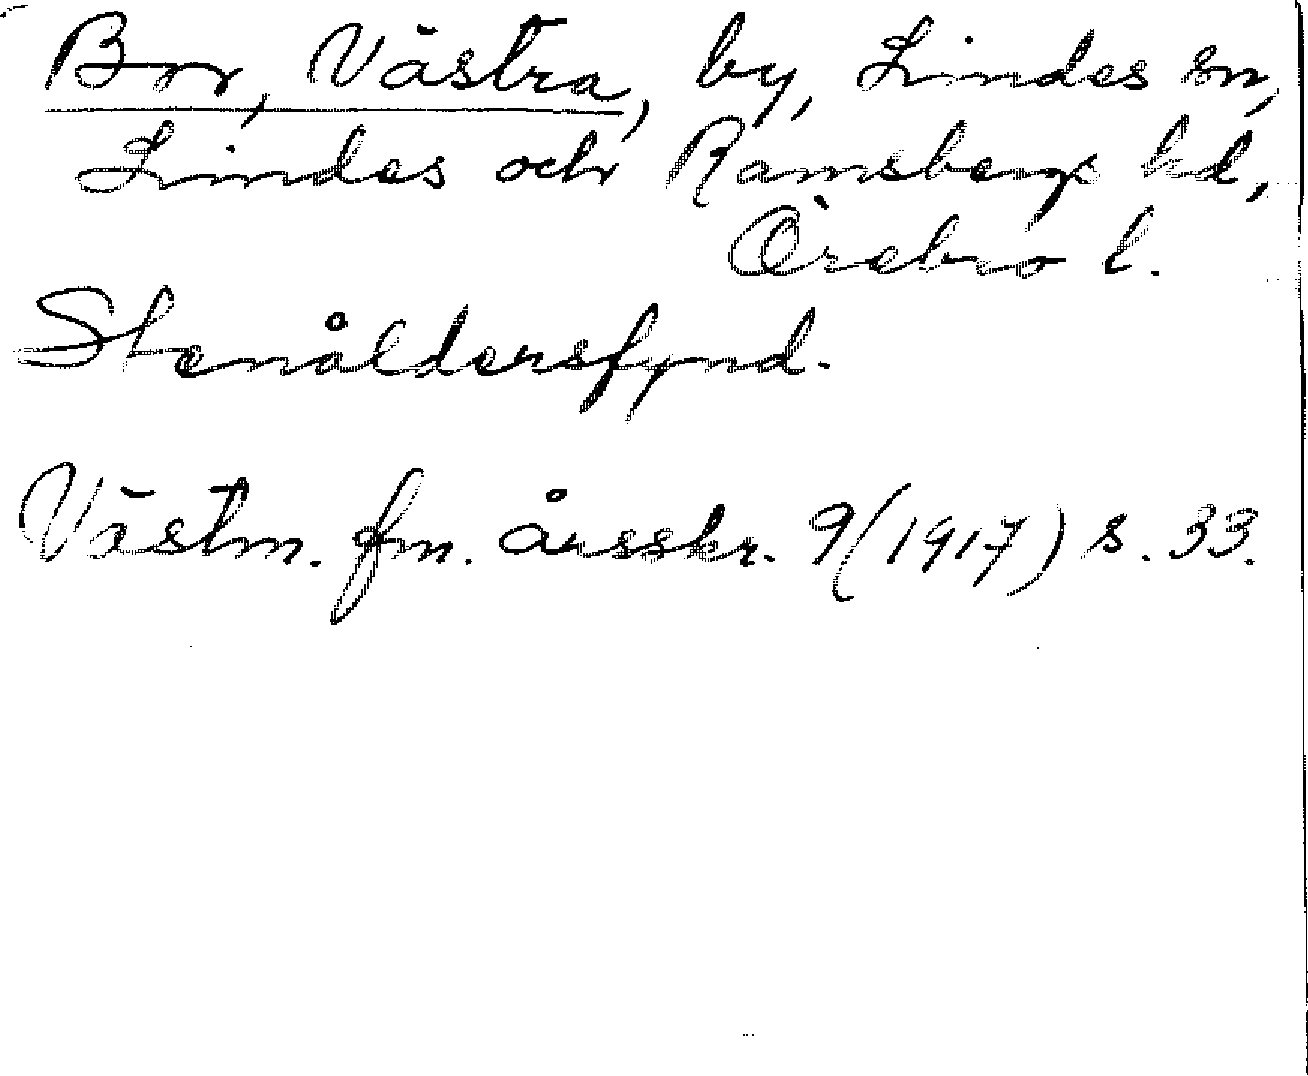 Bor, Västra, by, Lindes sn,
Lindes och Ramsbergs hd,
Örebro l.
Stenåldersfynd.
Västm. fm. årsskr. 9(1917) s. 33.